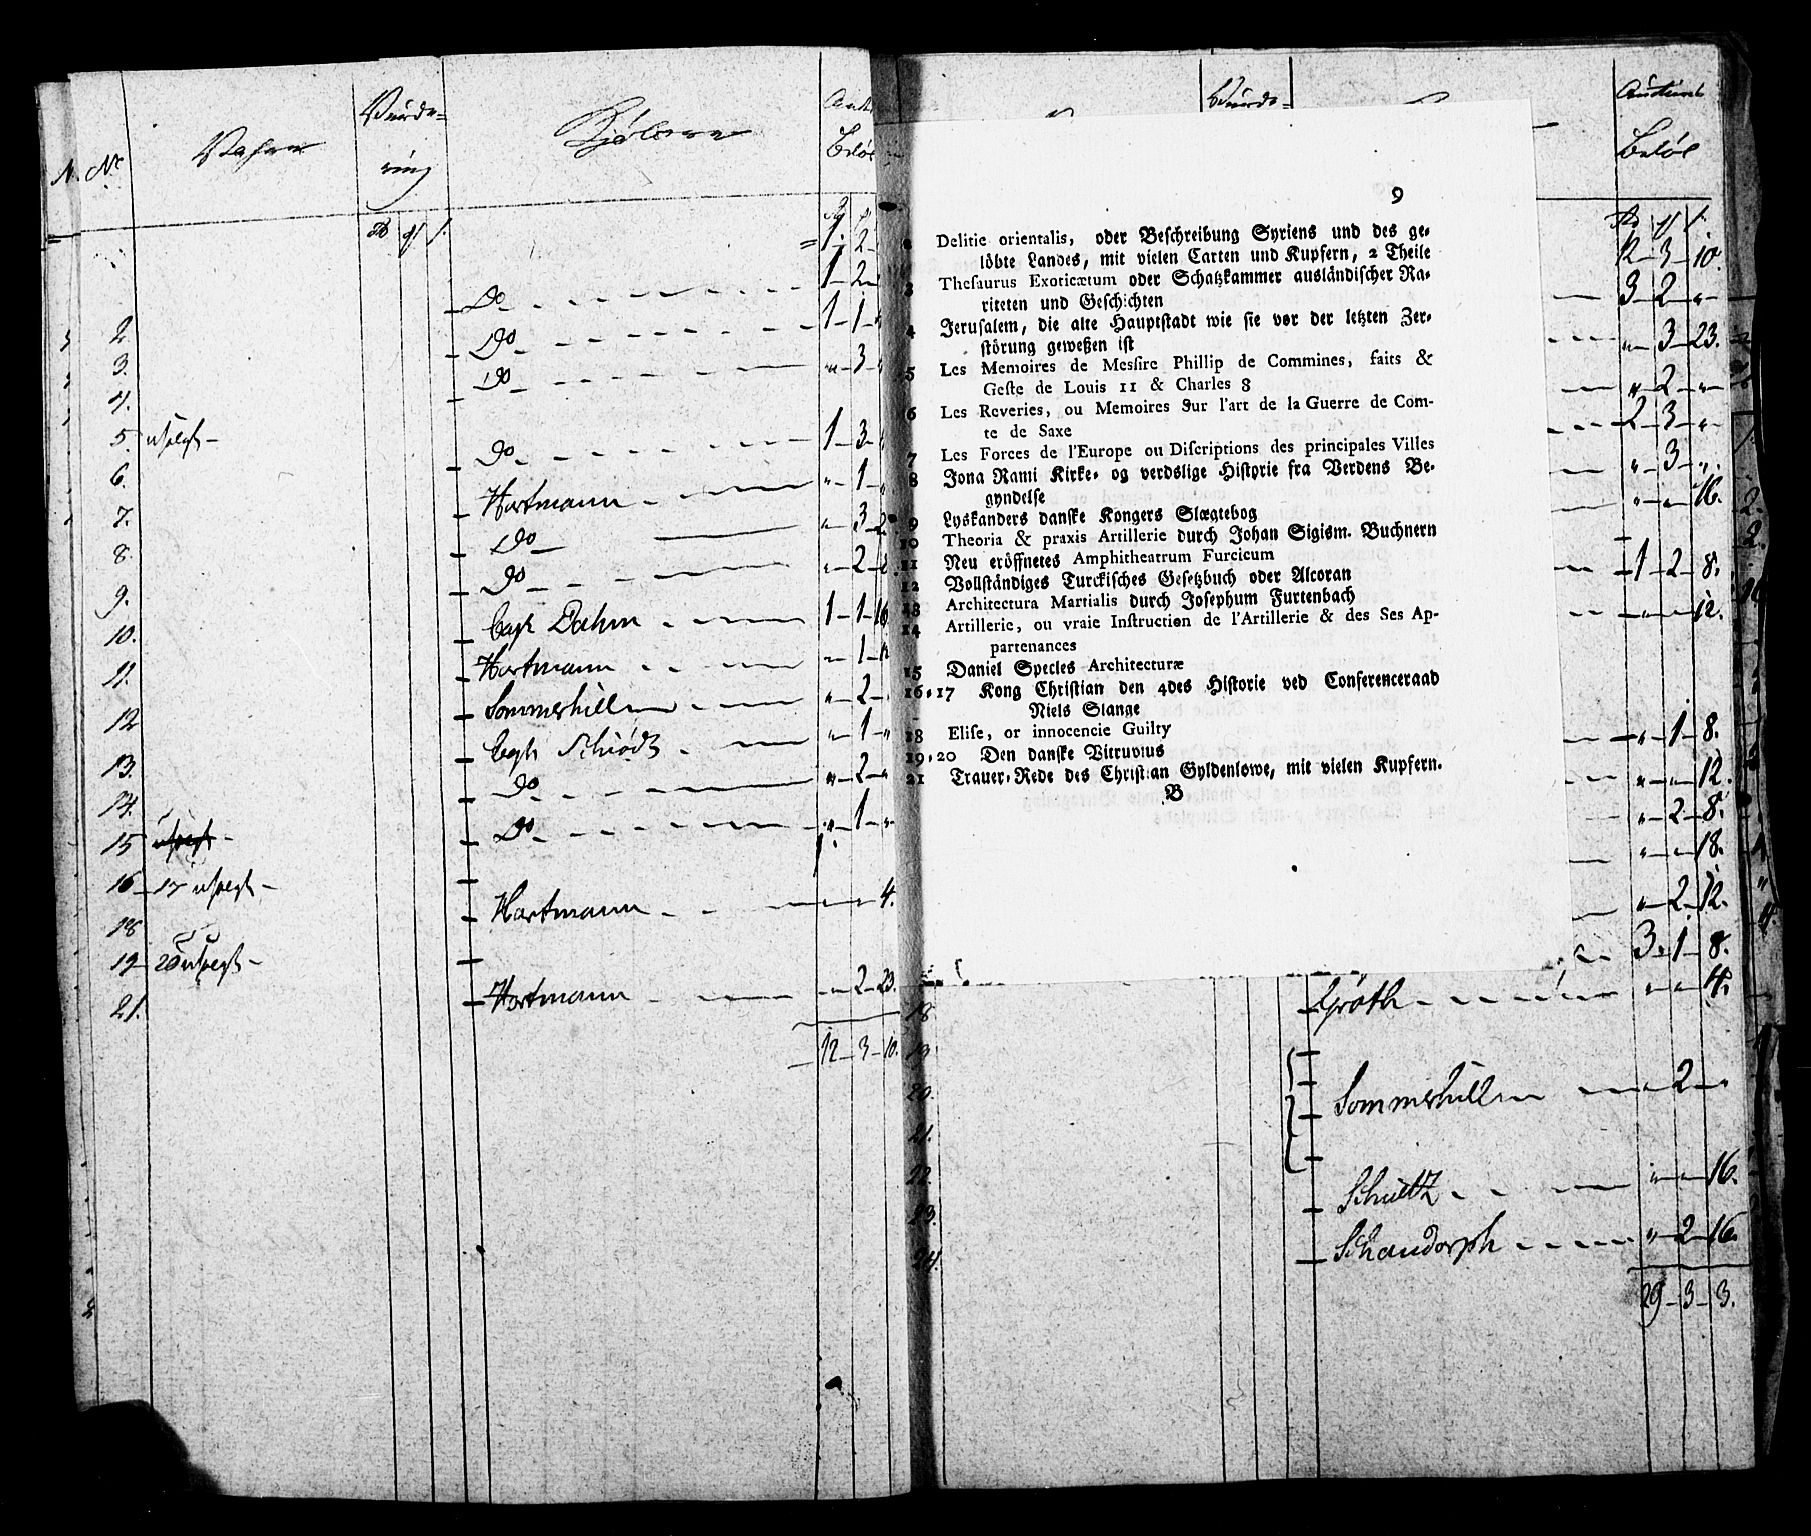 N. No Vahren Vurde= Kjøbere
ring Beløb
1 2
Do 1 2
2 Do 1 1
3. Do " 3
4.
5 usolgt Do 1 3
6. Hartmann " 1
7. Do " 3 2
8. Do " 2
9. Capt Dahm 1 1 16
10. Hartmann 1
11. Sommerhielm " 2
12 Capt Schiødz " 1 "
13. Do " 2 "
14. Do " 1 "
15 usolgt
16 17 usolgt
18 Hartmann 4.
19 20 usolgt
21. Hartmann 2 23.
12 3 10.
9
2 Delitie orientalis, oder Beschreibung Syriens und des ge-
löbte Landes, mit vielen Carten und Kupfern, 2 Theile
3 Thesaurus Exoticætum oder Schatzkammer ausländischer Ra-
riteten und Geschichten
4 Jerusalem, die alte Hauptstadt wie sie vor der letzten Zer-
störung geweßen ist
5 Les Memoires de Messire Phillip de Commines, faits &
Geste de Louis 11 & Charles 8
6 Les Reveries, ou Memoires Sur l'art de la Guerre de Com-
te de Saxe
7 Les Forces de l'Europe ou Discriptions des principales Villes
8 Jona Rami Kirke- og verdslige Historie fra Verdens Be-
gyndelse
9 Lyskanders danske Kongers Slægtebog
10 Theoria & praxis Artillerie durch Johan Sigism. Buchnern
11 Neu eröffnetes Amphitheatrum Furcicum
12 Vollständiges Turckisches Gesetzbuch oder Alcoran
13 Architectura Martialis durch Josephum Furtenbach
14 Artillerie, ou vraie Instruction de l'Artillerie & des Ses Ap-
partenances
15 Daniel Specles Architecturæ
16-17 Kong Christian den 4des Historie ved Conferenceraad
Niels Slange
18 Elise, or innocencie Guilty
19-20 Den danske Vitruvius
21 Trauer-Rede des Christian Gyldenlowe, mit vielen Kupfern.
B
Vurde= Auctions
Beløb
12 3 10.
3 2 "
" 3 23.
" 2 "
2 3 "
" 3 "
" " 16.
1 2 8.
12.
" 1 8.
" " 12.
" 2 8.
" " 18.
" 2 12.
3 1 8.
Grøth " " 4.
18
19
20. Sommerhielm " 2 "
21.
22. Schultz " " 16.
23.
24. Schandorph " 2 16.
29 3 3.